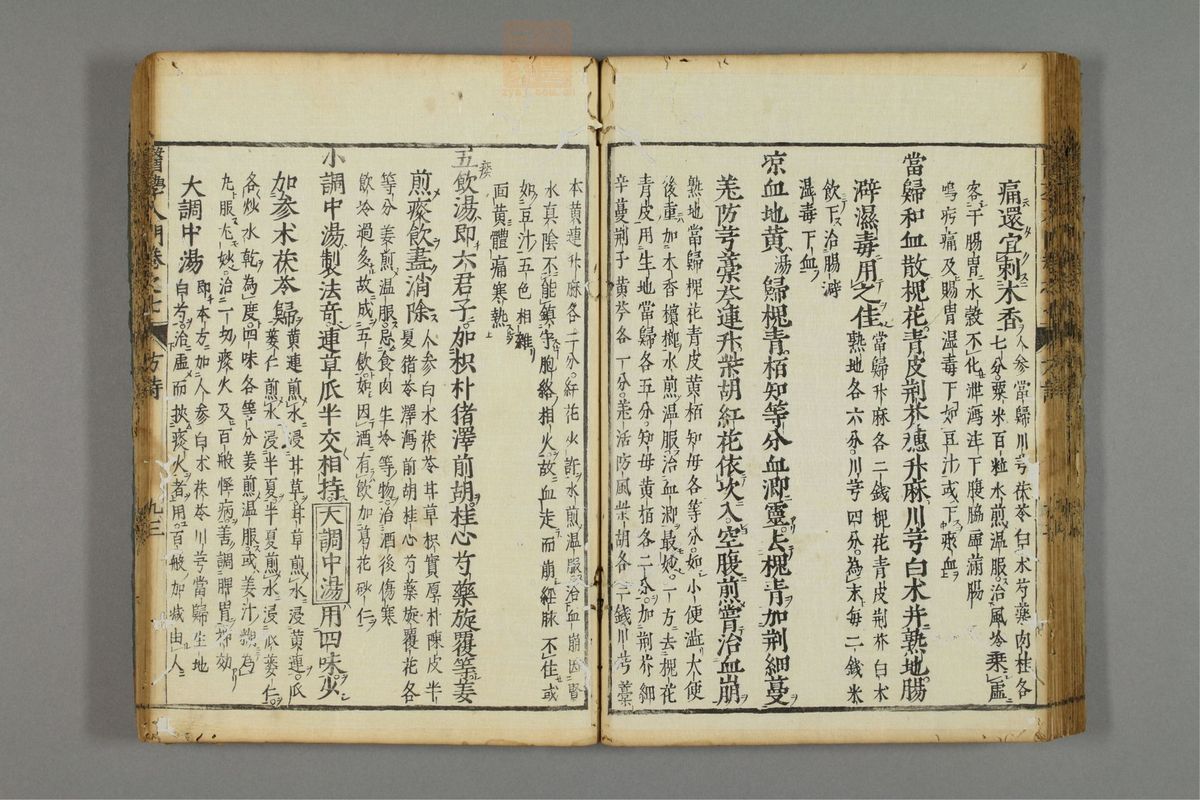 痛還宜刺木香人參當歸川芎茯苓白朮芍藥肉桂各
七分粟米百粒水煎温服治風冷乗虚
客于腸胃水穀不化泄瀉注下腹脇虚滿腸
鳴㽲痛及腸胃湿毒下如豆汁或下瘀血
當歸和血散槐花青皮荆芥穗升麻川芎白朮并熟地腸
澼濕毒用之佳當歸升麻各二錢槐花青皮荆芥白朮
熟地各六分川芎四分為末毎二錢米
飲下治腸澼
湿毒下血
凉血地黄湯歸槐青栢知等分血溺靈去槐青加荆細蔓
羌防芎藁芩連升柴胡紅花依次入空腹煎嘗治血崩
熟地當歸槐花青皮黄栢知毋各等分如小便澁大便
後重加木香檳榔水煎温服治血溺最妙一方去槐花
青皮用生地當歸各五分知毋黄栢各二分加荆芥細
辛蔓荆子黄芩各一分羌活防風柴胡各二錢川芎藁
本黄連升麻各二分紅花少許水煎温服治血崩因腎
水真陰不能鎮守胞絡相火故血走而崩經脉不住或
如豆汁五色相雜
面黄體痛寒熱
痰
五飲湯即六君子加枳朴猪澤前胡桂心芍藥旋覆等姜
煎痰飲盡消除人參白朮茯苓甘草枳實厚朴陳皮半
夏猪苓澤瀉前胡桂心芍藥旋覆花各
等分姜煎温服忌食肉生冷等物治酒後傷寒
飲冷過多故成五飲如因酒有飲加葛花砂仁
小調中湯製法奇連草瓜半交相持大調中湯用四味少
加參朮茯苓歸黄連煎水浸甘草甘草煎水浸黄連瓜
蔞仁煎水浸半夏半夏煎水浸瓜蔞仁
各炒水乾為度四味各等分姜煎温服或姜汁糊為
丸服尤妙治一切痰火及百般怪病善調脾胃神効
大調中湯即本方加人參白朮茯苓川芎當歸生地
白芍治虚而挾痰火者用百般加减由人
醫學入門卷之七
方詩
九三